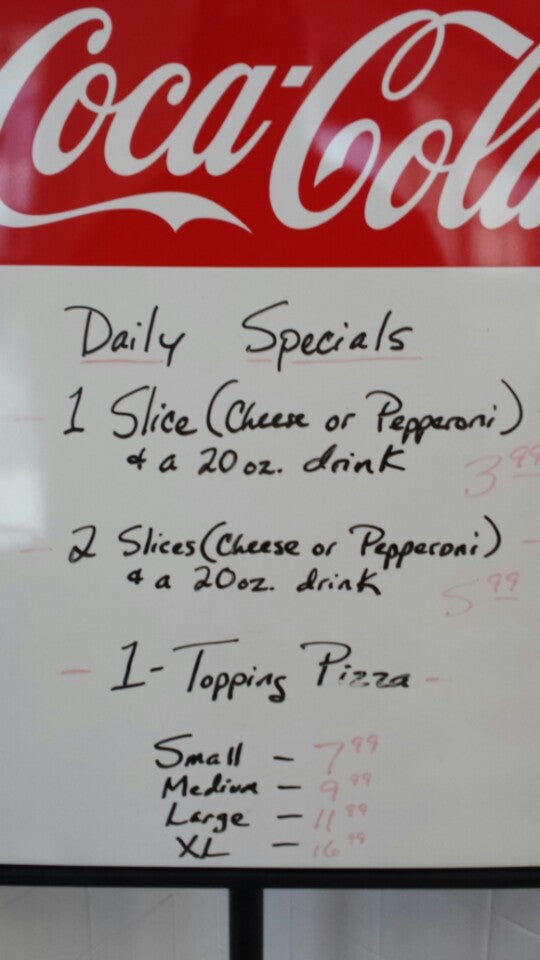 Coca-Cola
Daily Specials
1 Slice (Cheese or Pepperoni)
& a 20 oz. drink
3.99
2 Slices (Cheese or Pepperoni)
& a 20 oz. drink
5.99
- 1 - Topping Pizza -
Small - 7.99
Medium - 9.99
Large - 11.99
XL - 16.99